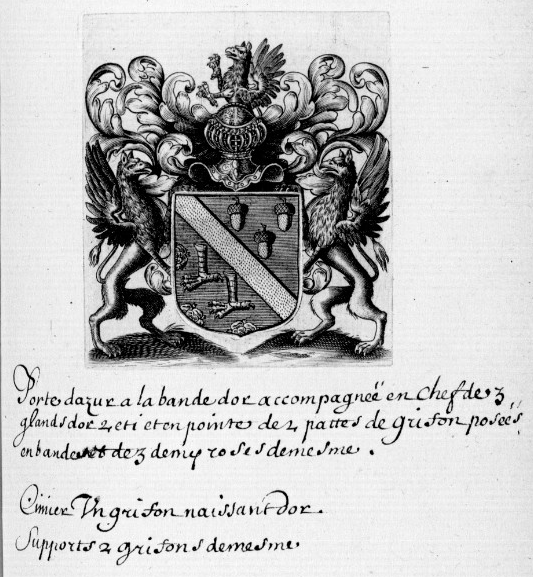 Porte dazur a la bande dor accompagneé en Chef de 3
glands dor 2 et 1 et en pointe de 2 pattes de grifon poseés
en bande et de 3 demy roses demesme.
Cimier Un grifon naissant dor.
Supports 2 grifons demesme